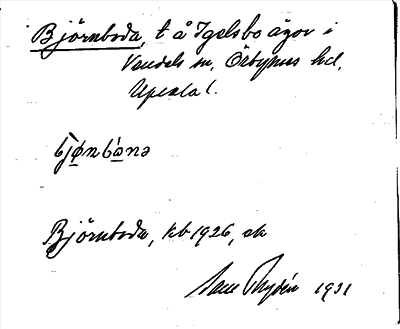 Björnboda, t å Igelsbo ägor i
Vendels sn, Örbyhus hd,
Upsala l.
bjø̱nbɷ̱nə
Björnboda, kb 1926, ek
Rydén 1931